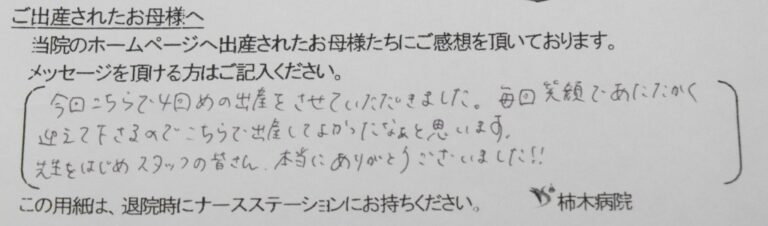 ご出産されたお母様へ
当院のホームページへ出産されたお母様たちにご感想を頂いております。
メッセージを頂ける方はご記入ください。
今回こちらで4回めの出産をさせていただきました。毎回笑顔であたたかく
迎えて下さるのでこちらで出産してよかったなぁと思います。
先生をはじめスタッフの皆さん、本当にありがとうございました!!
この用紙は、退院時にナースステーションにお持ちください。
柿木病院